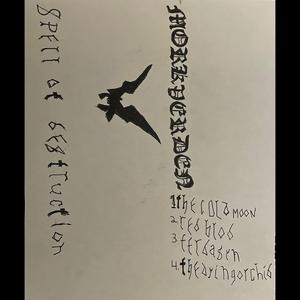 MORKVERDEN
spell of destruction
1 the cold moon
2. red blod
3
4. the dying orchid